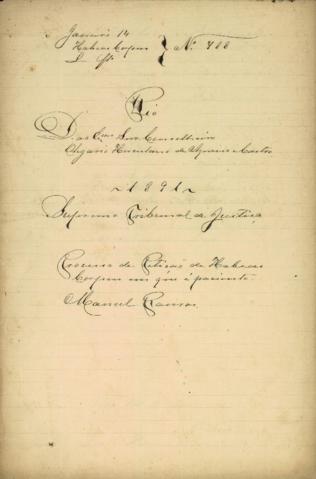 Janeiro 14
Habeas Corpus } Nº 788
Rio
Do Exmo Snr Conselheiro
Olegario Herculano de Aquino e Castro
~ 1891 ~
Supremo Tribunal de Justiça
Recurso de Petição de Habeas
Corpus em que é paciente
Manuel Ramos